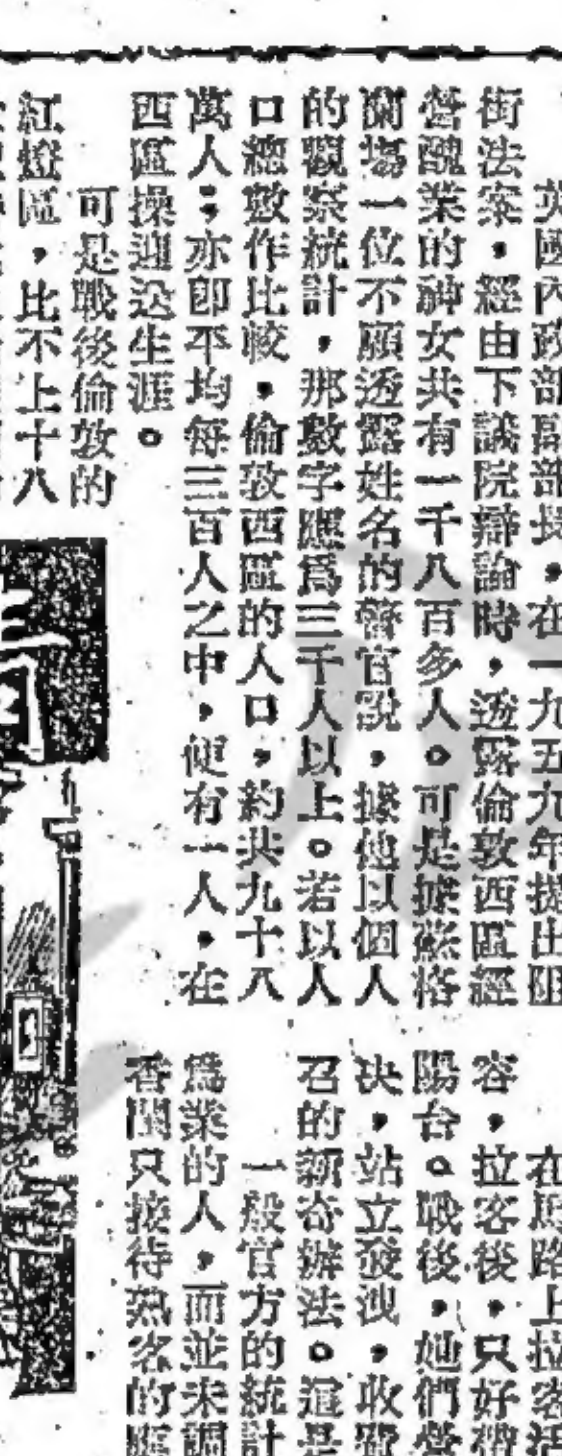 英國內政部副部長，在一九五九年提出阻
街法案，經由下議院辯論時，透露倫敦西區經
營醜業的神女共有一千八百多人。可是據蘇格
蘭場一位不願透露姓名的警官說，據他以個人
的觀察統計，那數字應爲三千人以上。若以人
口總數作比較，倫敦西區的人口，約共九十八
萬人；亦卽平均每三百人之中，便有一人，在
西區操迎送生涯。
可是戰後倫敦的
紅燈區，比不上十八
在馬路上拉客
容，拉客後，只好
陽台。戰後，她們
决，站立發洩，收
召的新奇辦法。這是
一般官方的統計
爲業的人，而並未調
香閨只接待熟客的